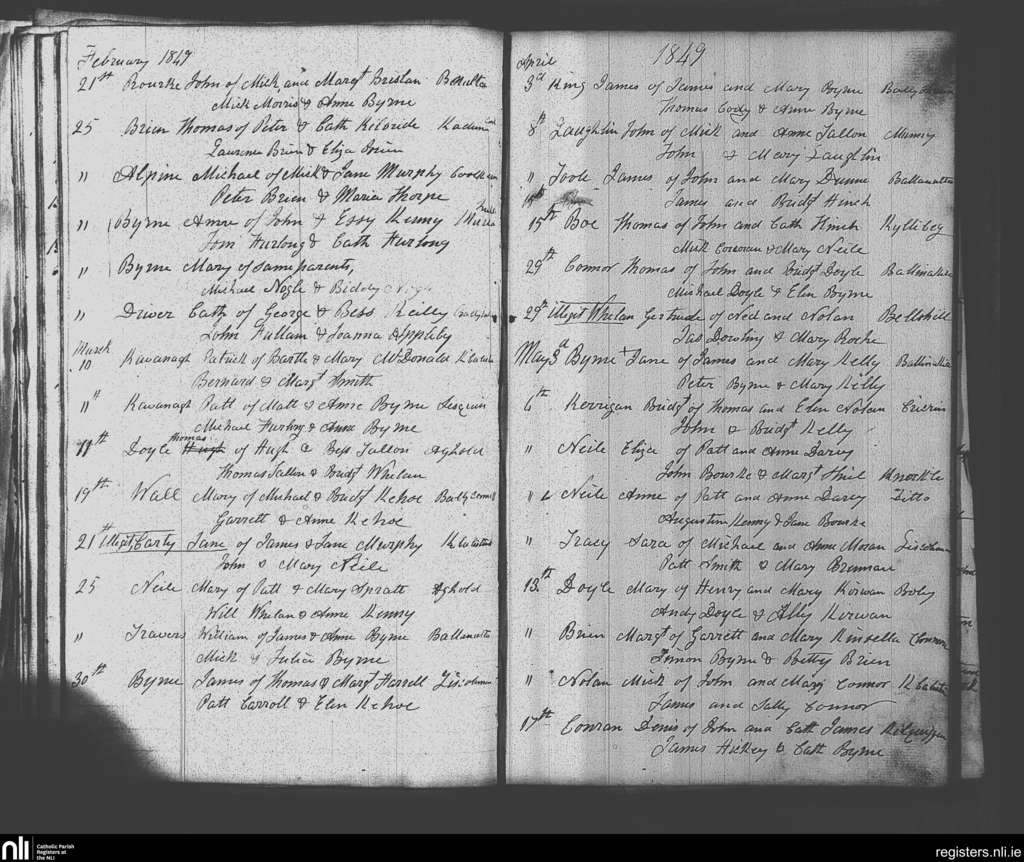 February 1849
21st Rourke John of Mick and Margt Breslan
Mick Morris & Anne Byrne
25 Brien Thomas of Peter & Cath
Laurence Brien & Eliza Brien
" Alpine Michael of Mick & Jane Murphy
Peter Brien & Maria Thorpe
" Byrne Anne of John & Essy Kenny
Tom Furlong & Cath Furlong
" Byrne Mary of same parents,
Michael Nogle & Biddy
" Driver Cath of George & Bess Reilly
John Fullam & Joanna Appleby
March
10 Kavanagh Patrick of Bartle & Mary McDonald
Bernard & Margt Smith
11th Kavanagh Patt of Matt & Anne Byrne
Michael Furlong & Anne Byrne
11th Doyle Thomas Hugh of Hugh & Bess Tallon Aghold
Thomas Tallon & Bridgt Whelan
19th Wall Mary of Michael & Bridgt Kehoe
Garrett & Anne Kehoe
21st Illegt Carty Jane of James & Jane Murphy
John & Mary Neile
25 Neile Mary of Patt & Mary Spratt Aghold
Will Whelan & Anne Kenny
" Travers William of James & Anne Byrne
Mick & Julia Byrne
30th Byrne James of Thomas & Margt Farrell
Patt Carroll & Elen Kehoe
1849
April
3d King James of James and Mary Byrne
Thomas Cody & Anne Byrne
8th Laughlin John of Mick and Anne Tallon Munny
John & Mary Laughlin
" Toole James of John and Mary Dunne
James and Bridgt Hinch
15th Boe Thomas of John and Cath Hinch
Mick Corovan & Mary Neile
29th Connor Thomas of John and Bridgt Doyle
Michael Doyle & Elen Byrne
29th Illegt Whelan Gertrude of Ned and Nolan
Jas Dowling & Mary Roche
May 3d Byrne Jane of James and Mary Kelly
Peter Byrne & Mary Kelly
6th Kerrigan Bridgt of Thomas and Elen Nolan
John & Bridgt Kelly
" Neile Eliza of Patt and Anne Darcy
John Bourke & Margt
" & Neile Anne of Patt and Anne Darcy Ditto
Augustine Kenny & Jane Bourke
" Tracy Sara of Michael and Anne Moran
Patt Smith & Mary Brennan
13th Doyle Mary of Henry and Mary Kirwan Boley
Andy Doyle & Ally Kerwan
" Brien Margt of Garrett and Mary Kinsella
Simon Byrne & Betty Brien
" Nolan Mick of John and Mary Connor
James and Sally Connor
17th Conran Denis of John and Cath James
James Hickey & Cath Byrne
nli
Catholic Parish
Registers at
the NLI
registers.nli.ie